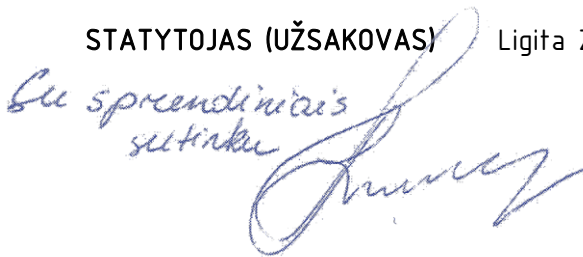 STATYTOJAS (UŽSAKOVAS) Ligita
Su sprendiniais
sutinku